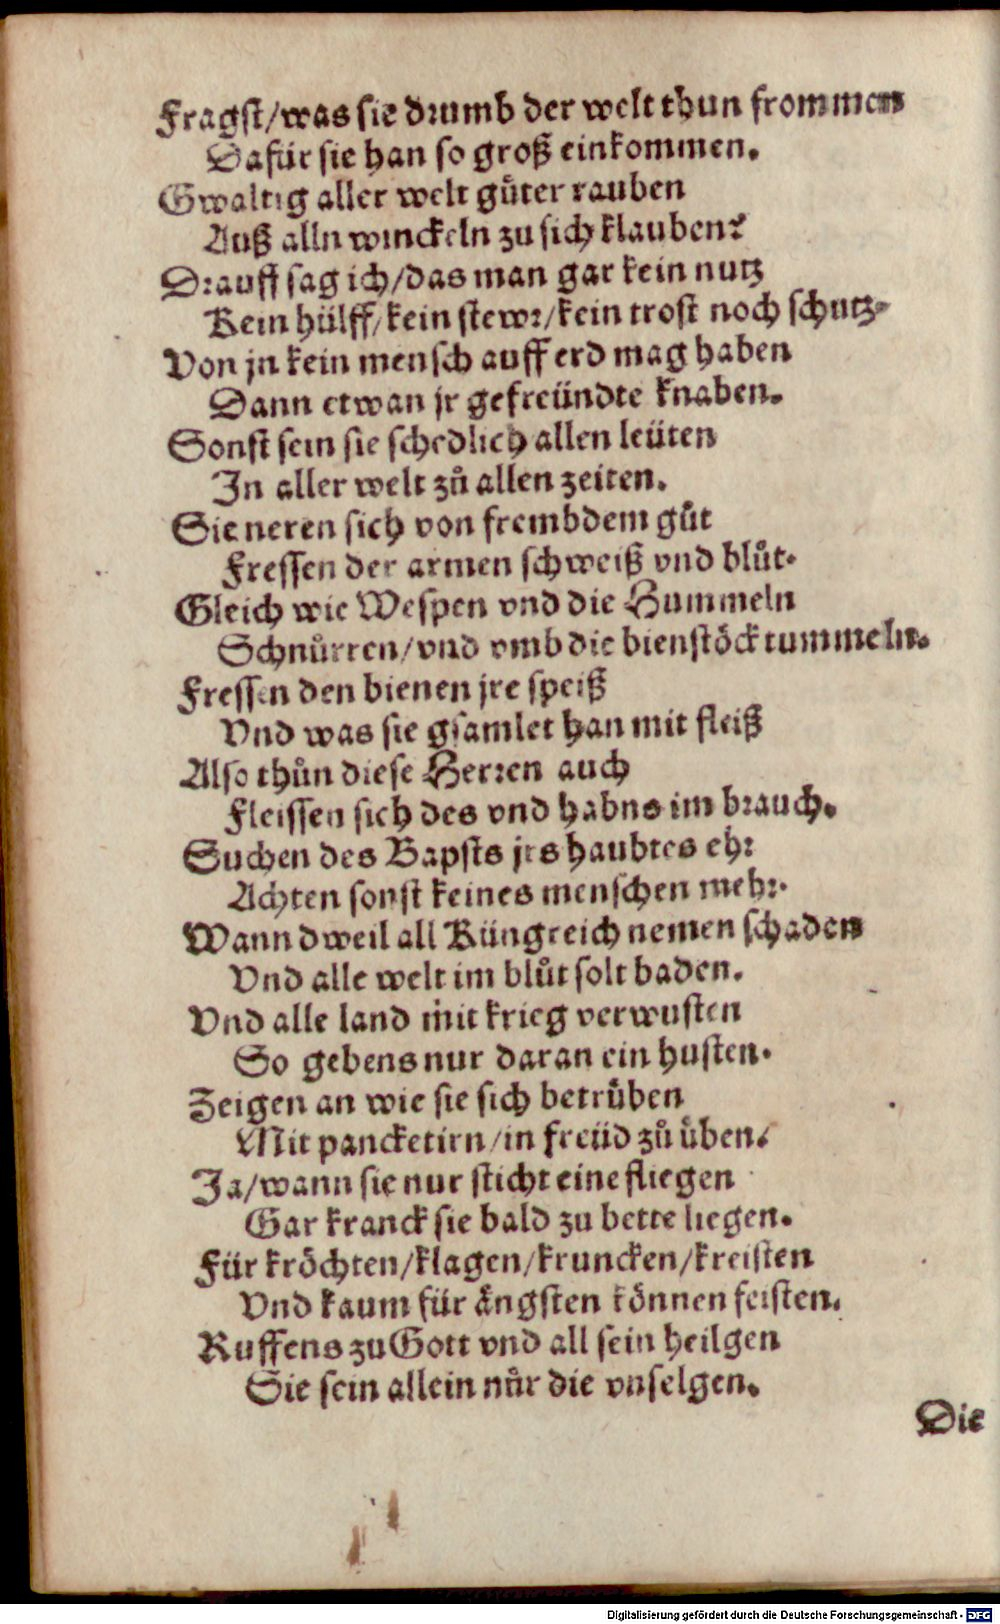 Fragst/was sie drumb der welt thun frommen
Dafür sie han so groß einkommen.
Gwaltig aller welt gůter rauben
Auß alln winckeln zu sich klauben?
Drauff sag ich/das man gar kein nutz
Kein hülff/kein stewr/kein trost noch schutz.
Von jn kein mensch auff erd mag haben
Dann etwan jr gefreündte knaben.
Sonst sein sie schedlich allen leüten
In aller welt zů allen zeiten.
Sie neren sich von frembdem gůt
Fressen der armen schweiß vnd blůt.
Gleich wie Wespen vnd die Hummeln
Schnůrren/vnd vmb die bienstöck tummeln.
Fressen den bienen jre speiß
Vnd was sie gsamlet han mit fleiß
Also thůn diese Herren auch
Fleissen sich des vnd habns im brauch.
Suchen des Bapsts jrs haubtes ehr
Achten sonst keines menschen mehr.
Wann dweil all Küngreich nemen schaden
Vnd alle welt im blůt solt baden.
Vnd alle land mit krieg verwusten
So gebens nur daran ein husten.
Zeigen an wie sie sich betrüben
Mit pancketirn/in freüd zů üben.
Ja/wann sie nur sticht eine fliegen
Gar kranck sie bald zu bette liegen.
Für kröchten/klagen/kruncken/kreisten
Vnd kaum für ängsten können feisten.
Ruffens zu Gott vnd all sein heilgen
Sie sein allein nůr die vnselgen.
Die
Digitalisierung gefördert durch die Deutsche Forschungsgemeinschaft - DFG